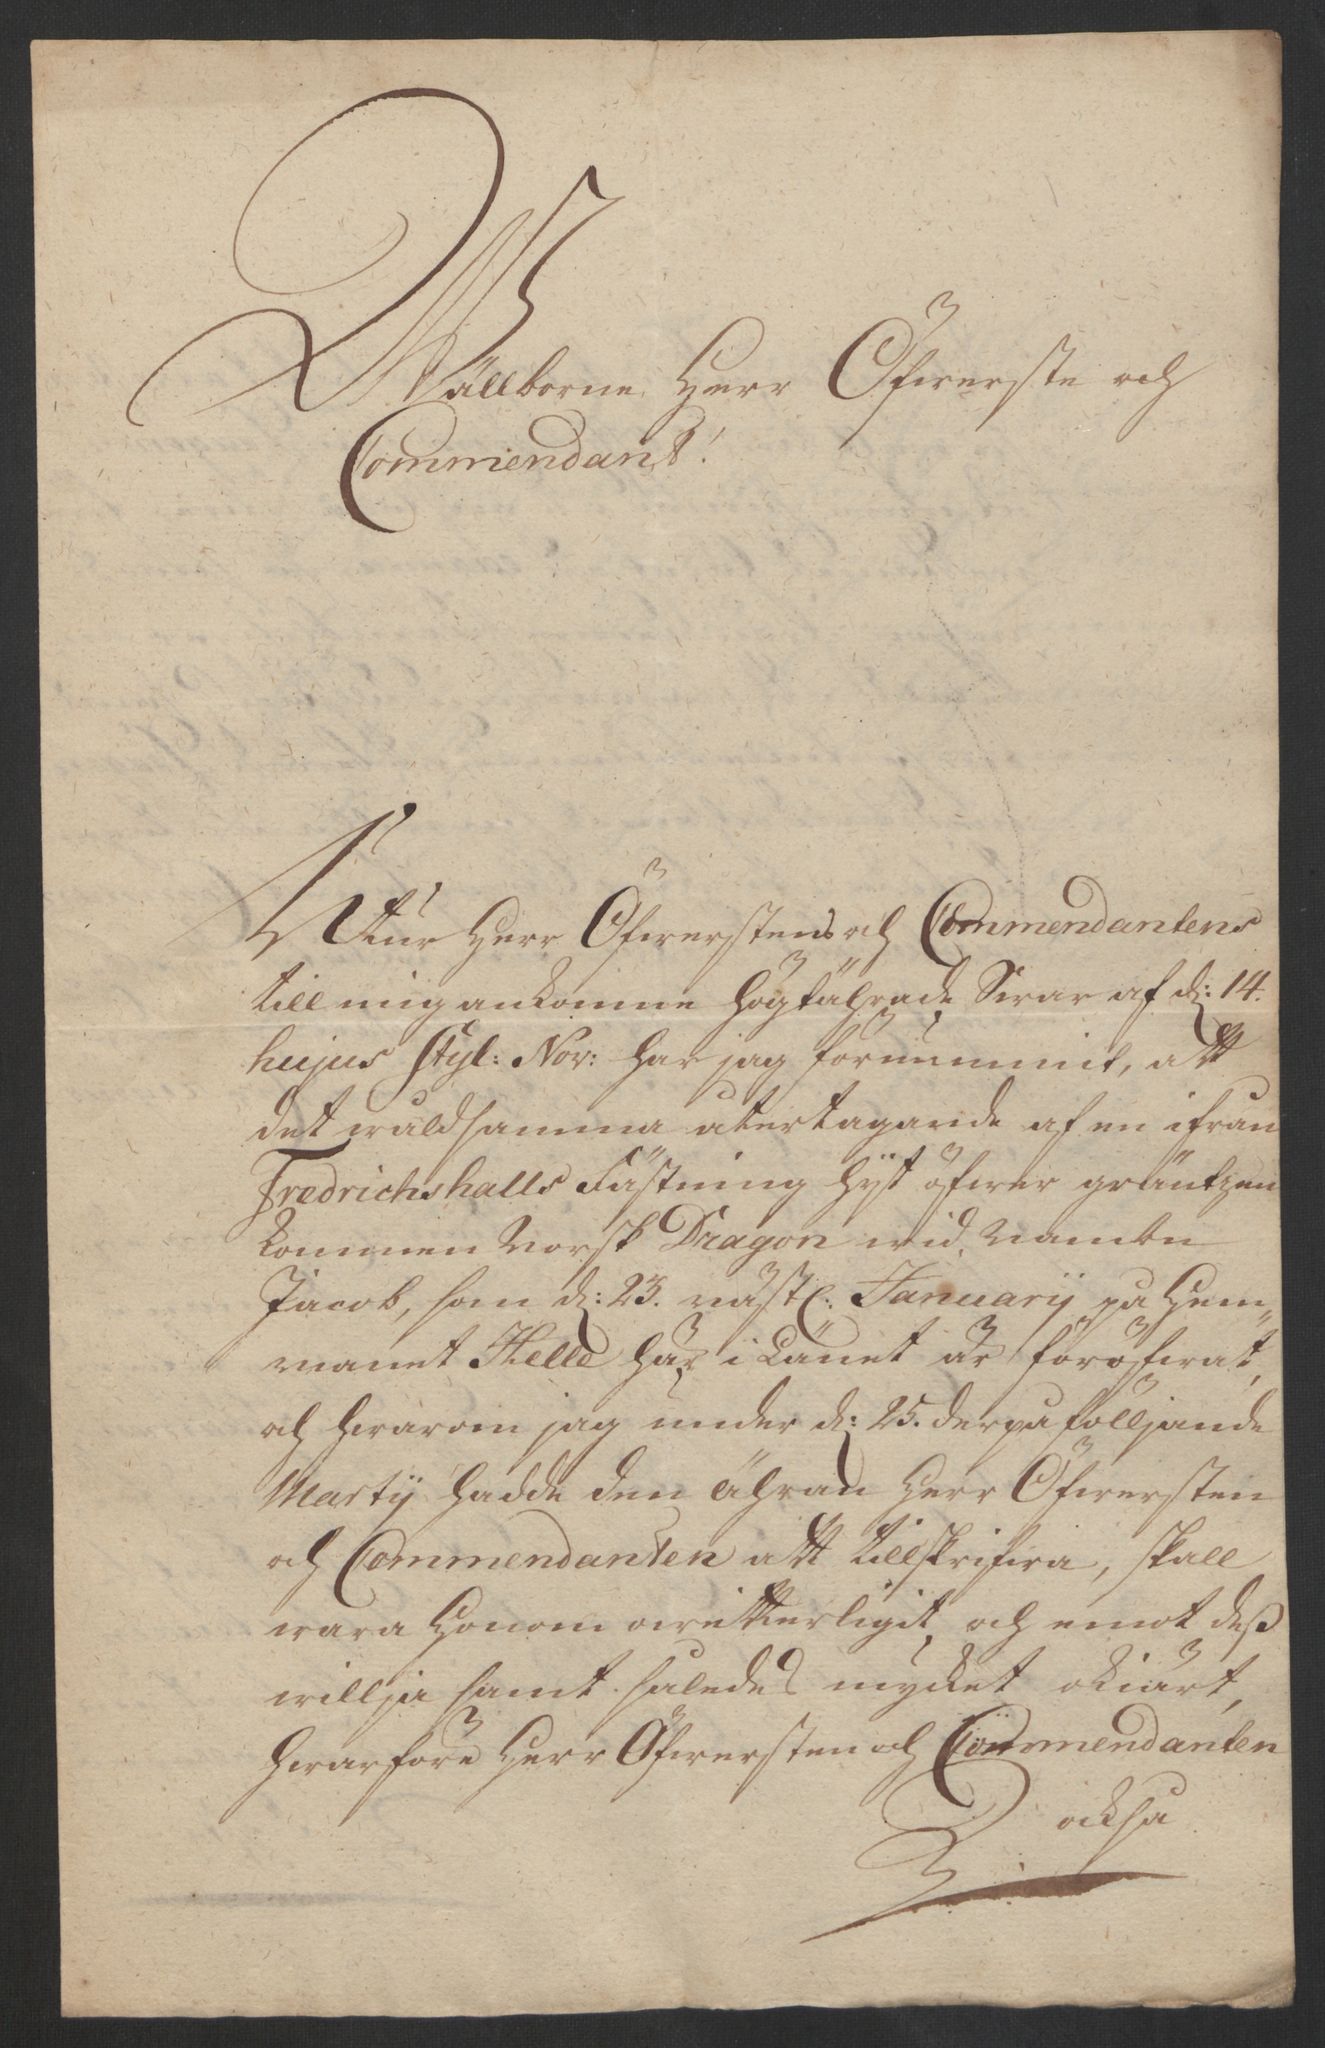 Wällborne Herr Öfwerste och
Commendant!
Utur Herr Öfwerstens och Commendantens
till mig ankomne högtährade Swar af d: 14.
hujus Styl: Nov: har jag förnummit, att
det wåldsamma återtagande af en ifrån
Fredrichshalls Fästning hijt öfwer gräntzen
kommen Norsk Dragon wid Namn
Jacob, som d: 23. näst l: Januarij på Hem„
manet Helle här i Länet är föröfwat,
och hwarom jag under d: 25. derpå följande
Martij hadde den ähran Herr Öfwersten
och Commendanten att tillskrifwa, skall
wara Honom owetterligit, och emot dess
willja samt således mycket okiärt,
hwarföre Herr Öfwersten och Commendanten
också